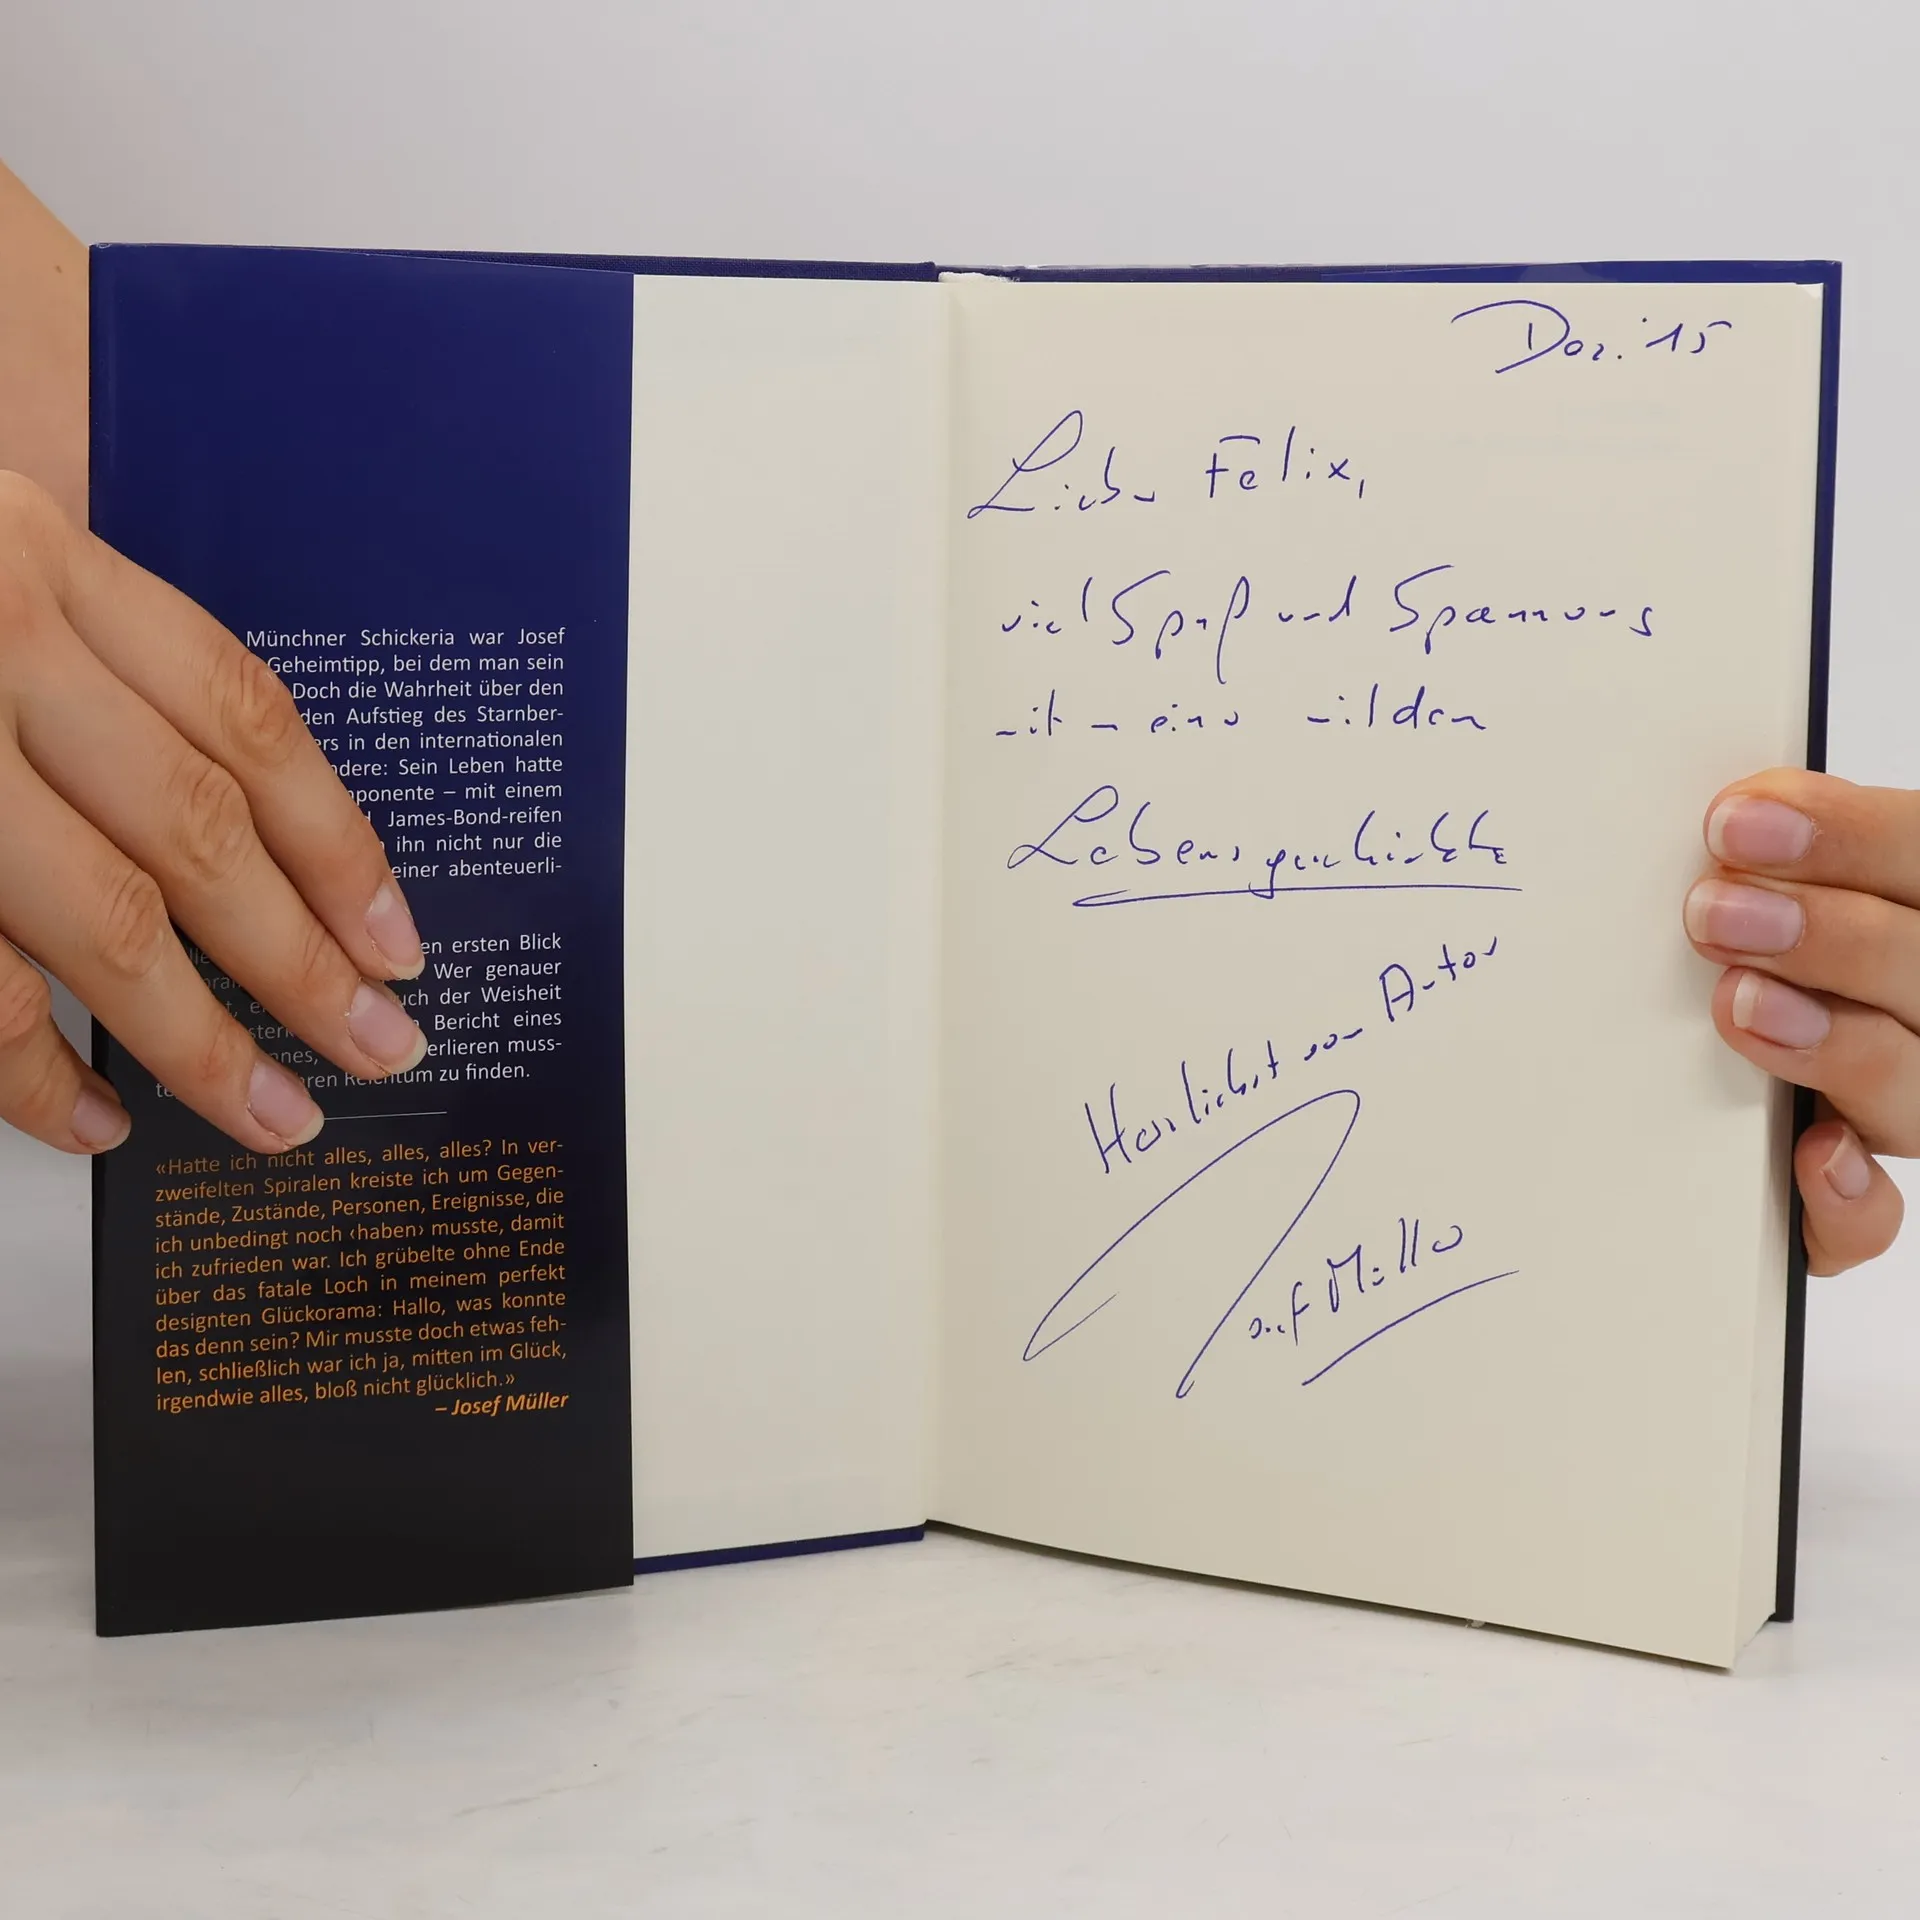 Münchner Schickeria war Josef
Geheimtipp, bei dem man sein
Doch die Wahrheit über den
den Aufstieg des Starnber-
ers in den internationalen
dere: Sein Leben hatte
ponente – mit einem
James-Bond-reifen
ihn nicht nur die
einer abenteuerli-
en ersten Blick
Wer genauer
uch der Weisheit
Bericht eines
nnes, erlieren muss-
te hren Reichtum zu finden.
«Hatte ich nicht alles, alles, alles? In ver-
zweifelten Spiralen kreiste ich um Gegen-
stände, Zustände, Personen, Ereignisse, die
ich unbedingt noch ‹haben› musste, damit
ich zufrieden war. Ich grübelte ohne Ende
über das fatale Loch in meinem perfekt
designten Glückorama: Hallo, was konnte
das denn sein? Mir musste doch etwas feh-
len, schließlich war ich ja, mitten im Glück,
irgendwie alles, bloß nicht glücklich.»
– Josef Müller
Dez. '15
Lieber Felix,
viel Spaß und Spannung
mit meiner wilden
Lebensgeschichte
Herzlichst vom Autor
Josef Müller